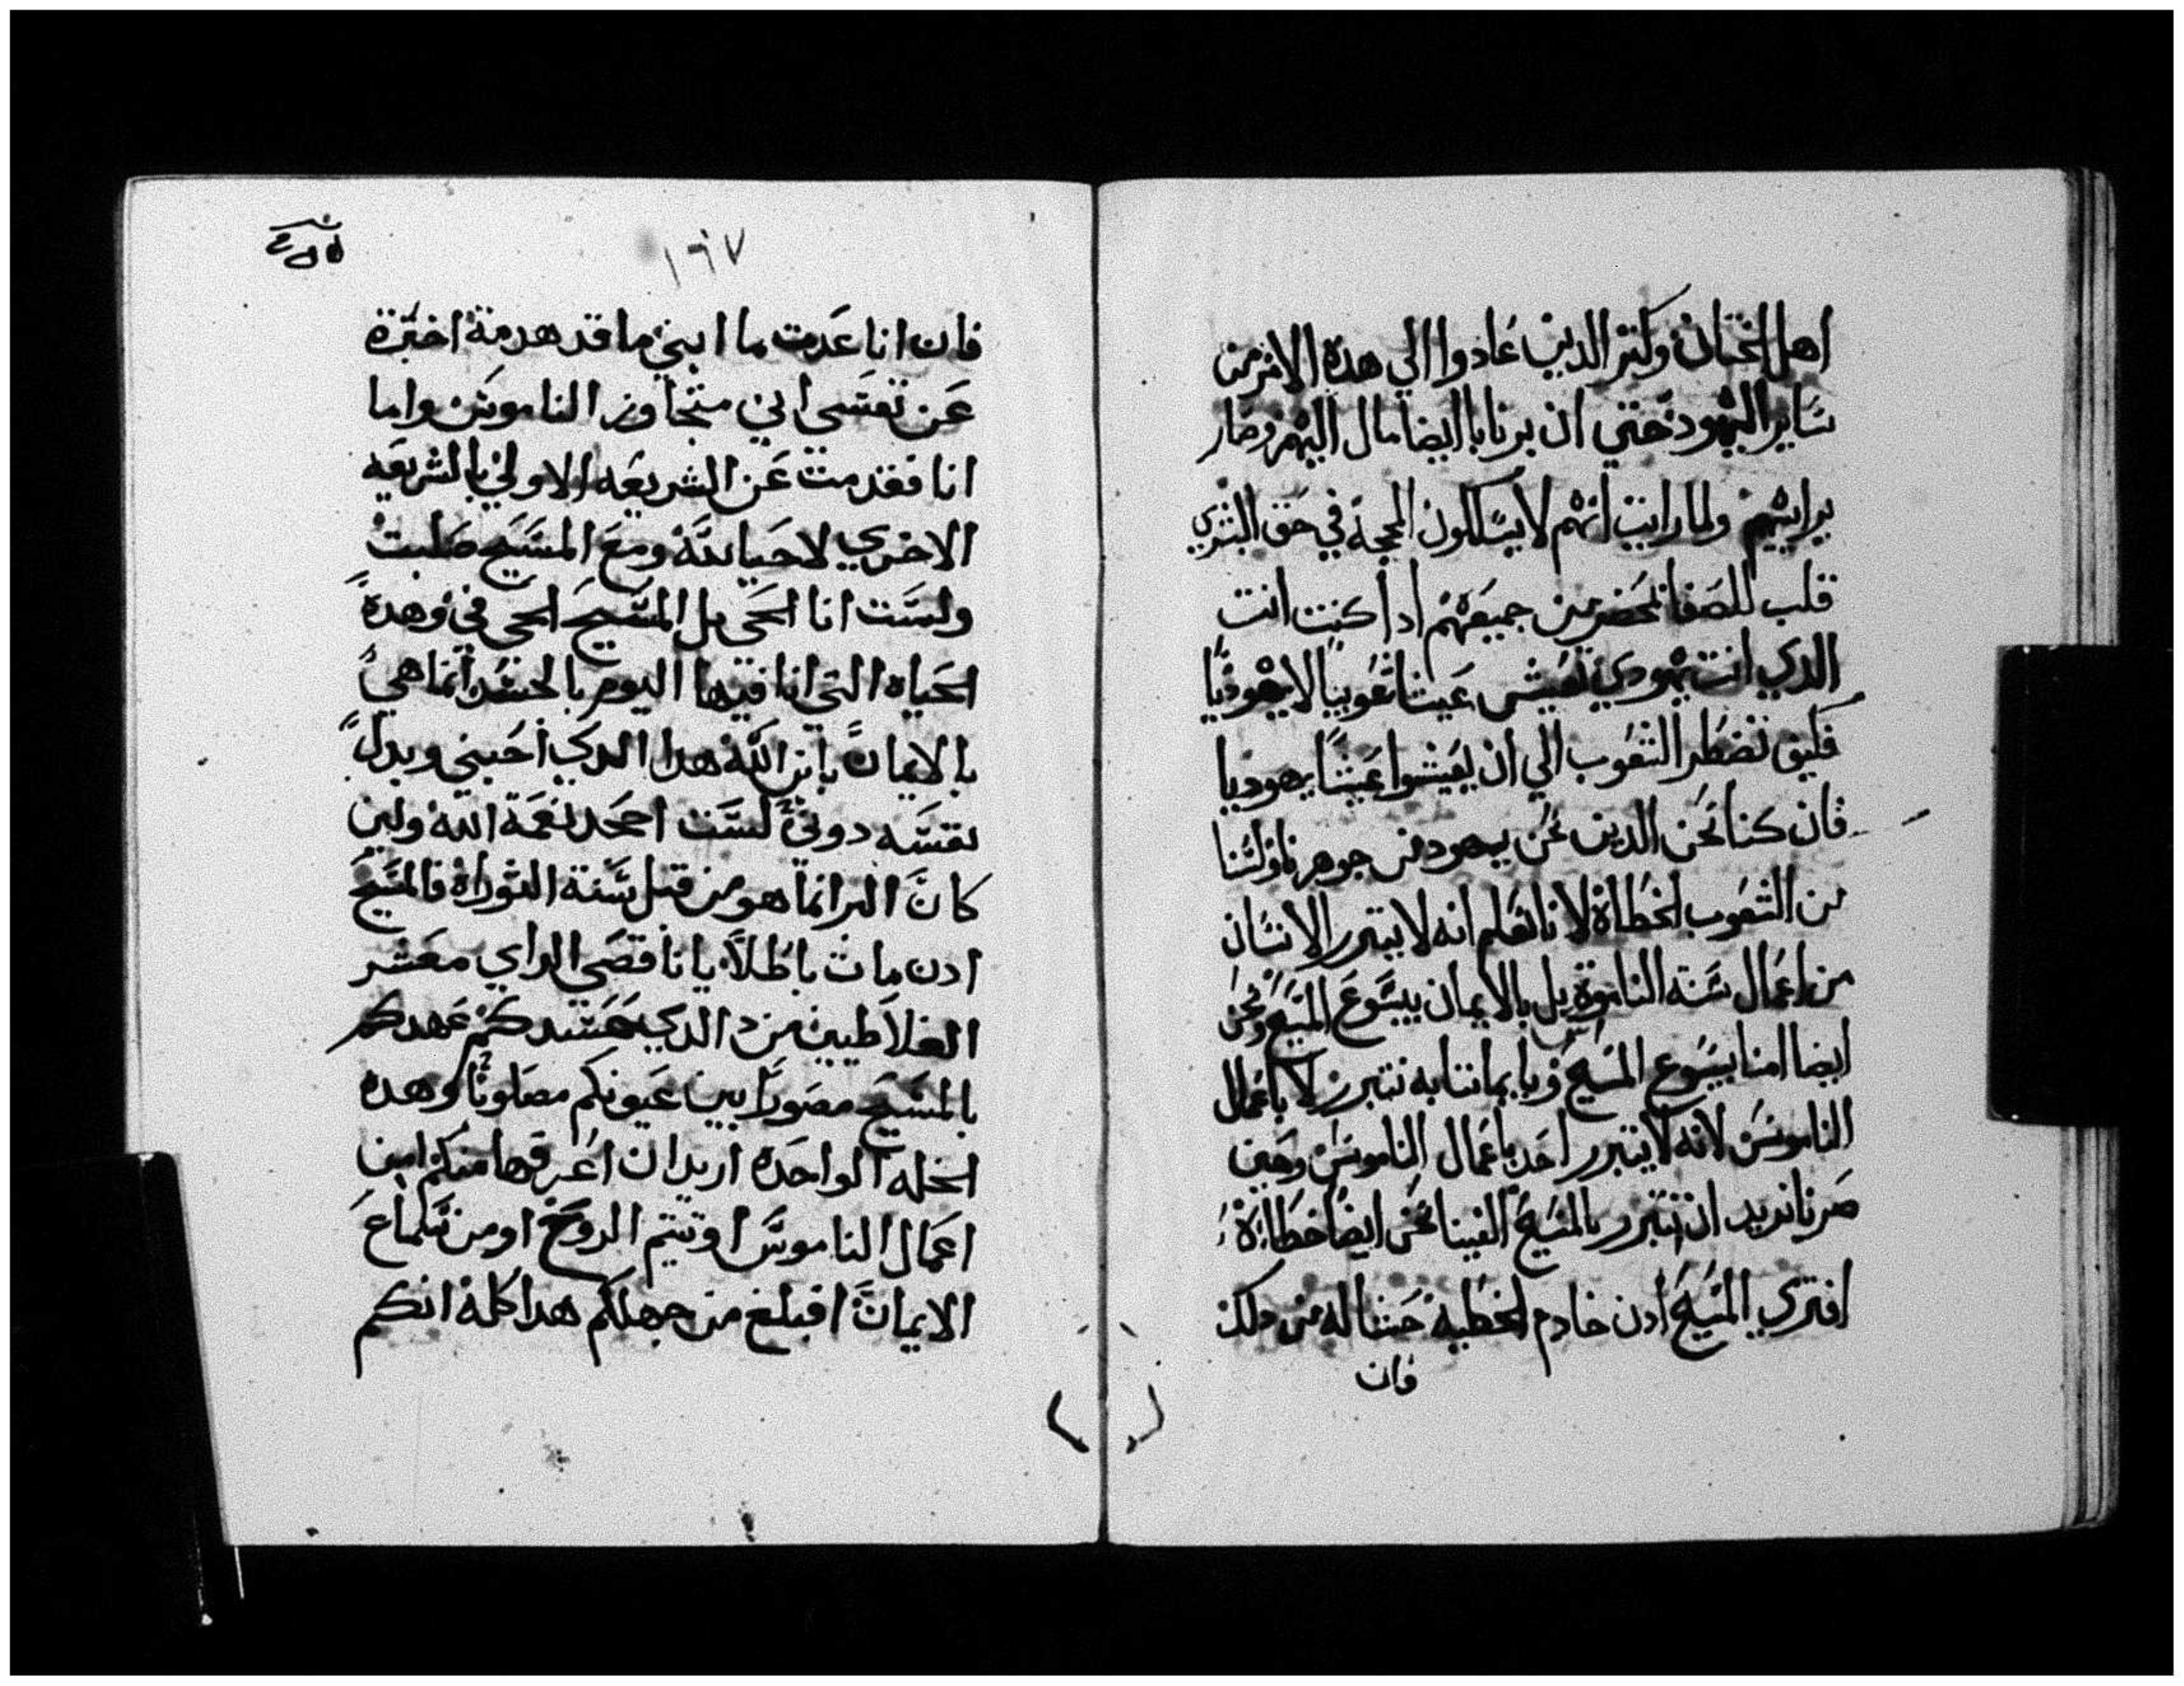 اهل الختان وكتر الدين عادوا الي هده الامر من
ساير اليهود حتي ان برنابا ايضا مال اليهم وصار
يراييهم ولما رايت انهم لا يسلكون المحجة في حق البشري
قلت للصفا بحضر من جميعهم ادا كنت انت
الدي انت يهودي تعيش عيشا شعوبيا لا يهوديا
فكيف تضطر الشعوب الي ان يعيشوا عيشا يهوديا
فان كنا نحن الدين نحن يهود من جوهرنا ولسنا
من الشعوب الخطاة لانا نعلم انه لا يتبرر الانسان
من اعمال سنه الناموس بل بالايمان بيسوع المسيح ونحن
ايضا امنا بيسوع المسيح وبايماننا به نتبرر لا باعمال
الناموس لانه لا يتبرر احد باعمال الناموس وحين
صرنا نريد ان نتبرر بالمسيح الفينا نحن ايضا خطااة
افتري المسيح ادن خادم الخطية حشا له من دلك
فان
١٦٧
فان انا عدت ما ابني ما قد هدمته اخبرة
عن نفسي اني متجاوز الناموس واما
انا فقد مت عن الشريعه الاولي بالشريعه
الاخري لاحيا لله ومع المسيح صلبت
ولست انا الحي بل المسيح الحي في وهدة
الحياه التي انا فيها اليوم بالجسد انما هي
بالايمان بابن الله هدا الدي احبني وبدل
نفسه دوني لست اجحد نعمة الله ولين
كان البر انما هو من قبل سنة التوراة فالمسيح
ادن مات باطلا يا ناقصي الراي معشر
الغلاطيين من د الدي حسدكم عهدكم
بالمسيح مصورا بين عيونكم مصلوبا وهده
الخله الواحده اريد ان اعرفها منكم امن
اعمال الناموس اوتيتم الروح او من سماع
الايمان افبلغ من جهلكم هدا كله انكم